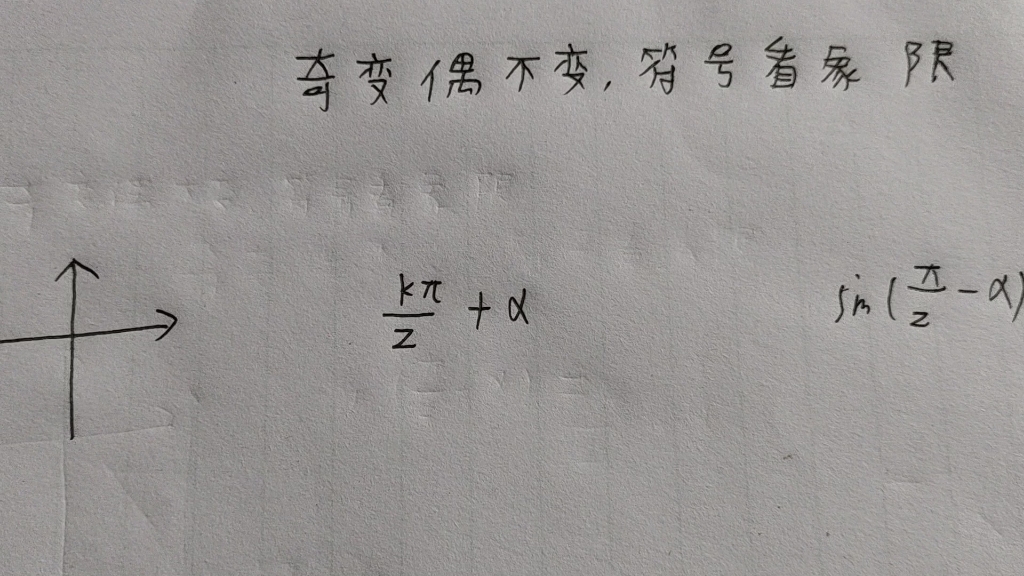 奇变偶不变,符号看象限
kπ/2 + α
sin(π/2 - α)